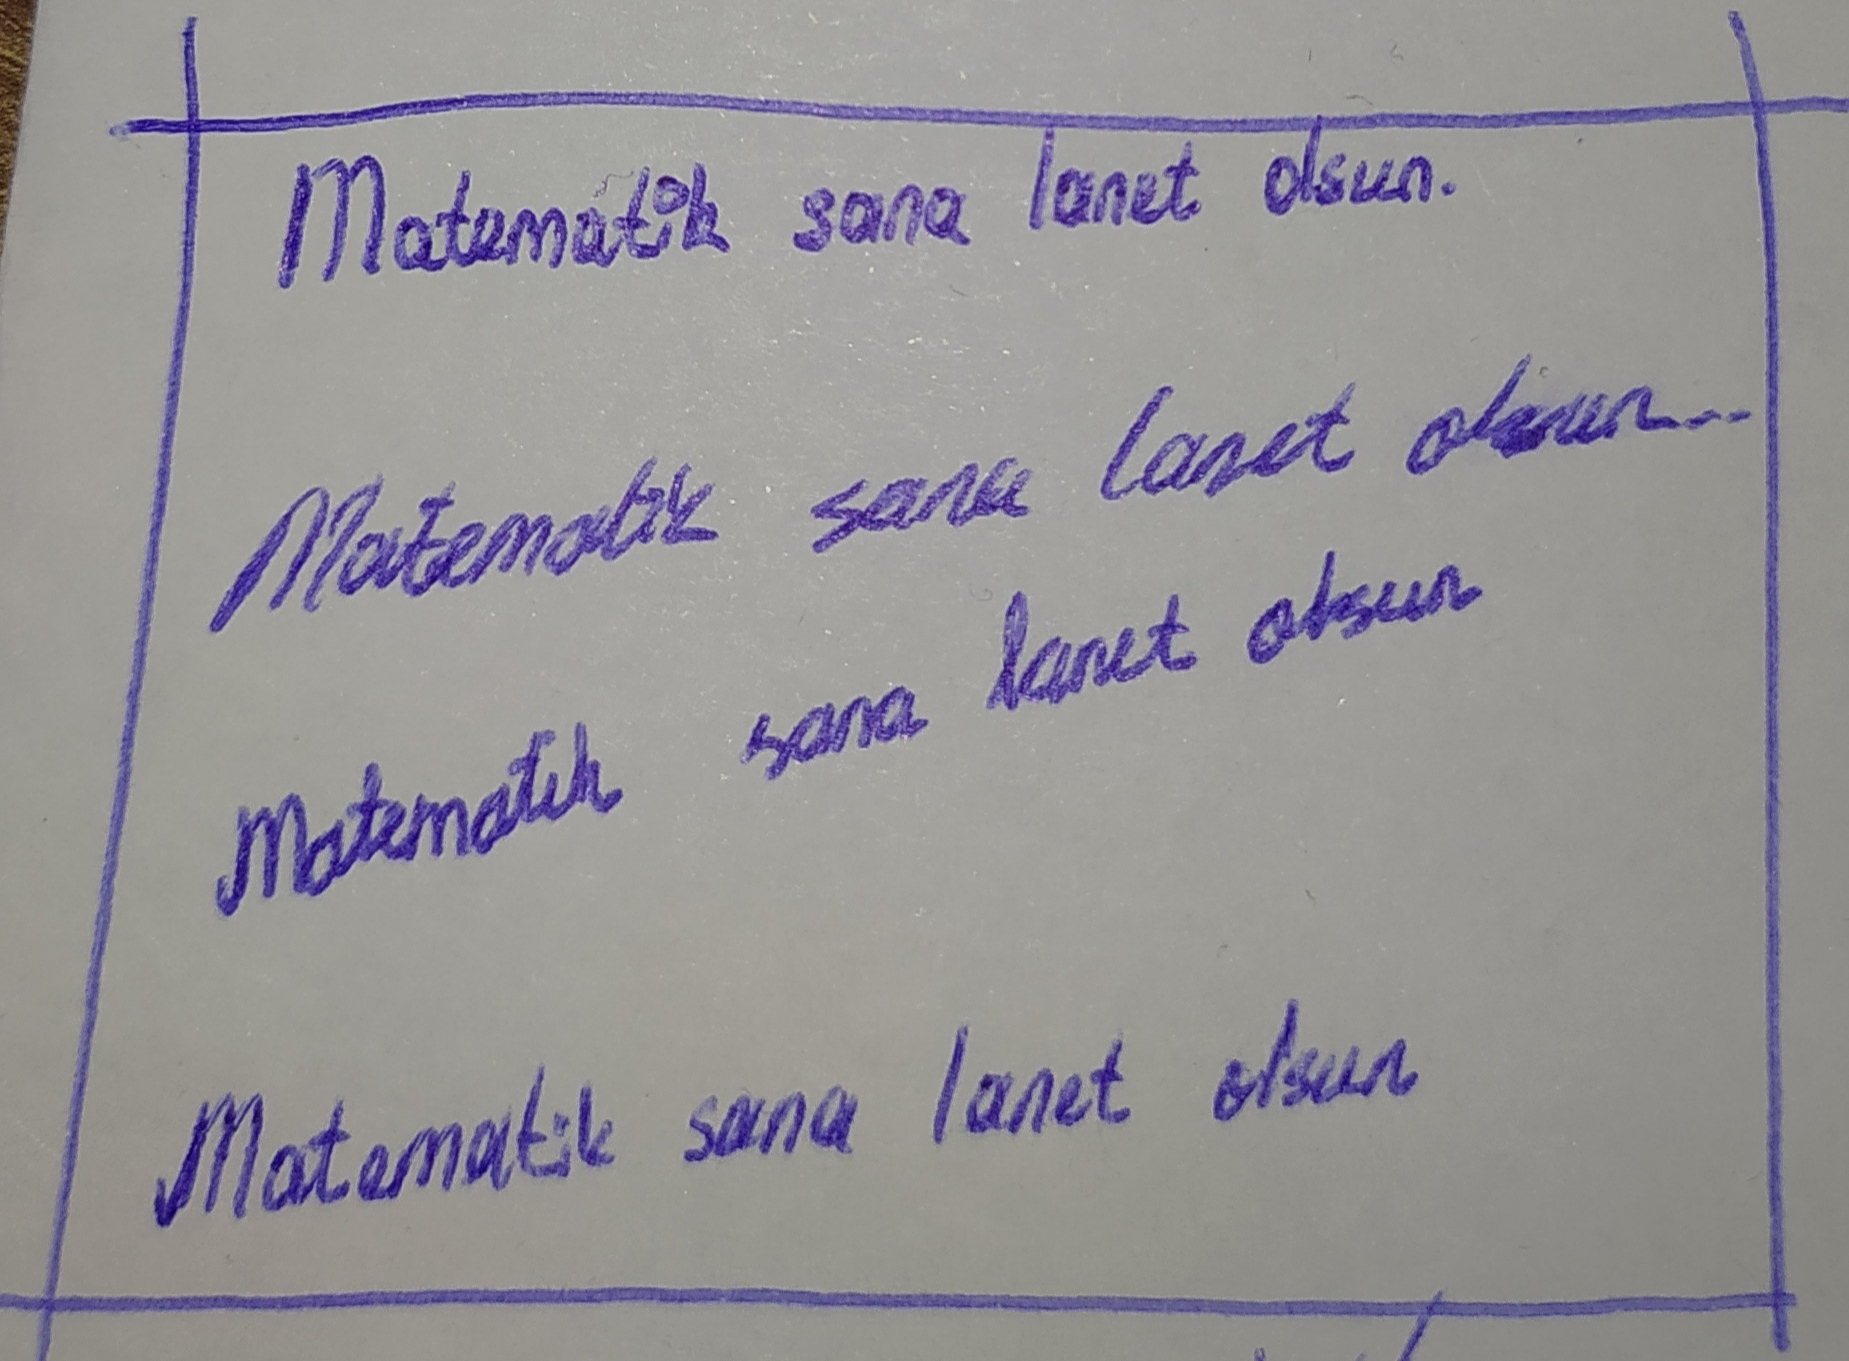 Matematik sana lanet olsun.
Matematik sana lanet olsun...
Matematik sana lanet olsun
Matematik sana lanet olsun